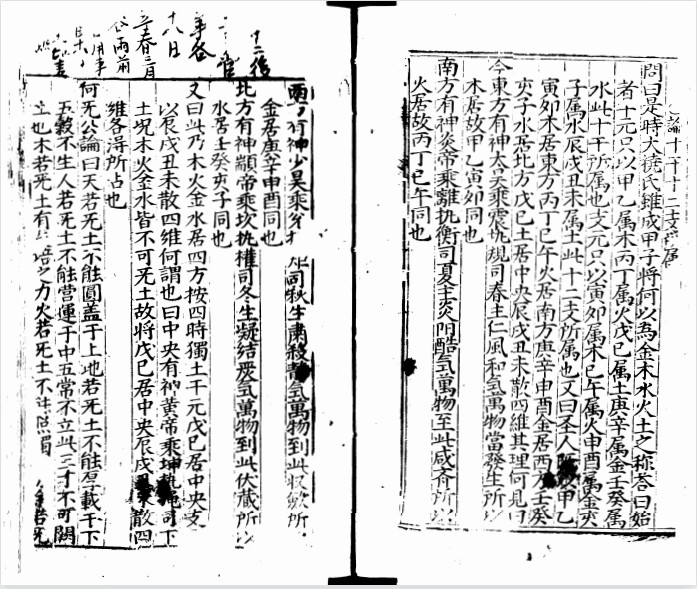 論十干十二支所属
問曰是時大撓氏雖成甲子将何以為金木水火土之称荅曰始
者十元只以甲乙属木丙丁属火戊巳属土庚辛属金壬癸属
水此十干所属也支元只以寅夘属木巳午属火申酉属金亥
子属水辰戌丑未属土此十二支所属也又曰圣人甲乙
寅夘木居東方丙丁巳午火居南方庚辛申酉金居西壬癸
亥子水居北方戊巳土居中央辰戌丑未散四維其理何見曰
東方有神太昊乘震執規司春主仁風和氣萬物當發生所以
木居故甲乙寅夘同也
南方有神炎帝乘離執衡司夏主炎陽酷氣萬物至此咸齊所以
火居故丙丁巳午同也
有神少昊乘兊司秋生肅殺静氣萬物到此収斂所
金居庚辛申酉同也
北方有神顓帝乘坎執權司冬生凝結嚴氣萬物到此伏蔵所以
水居壬癸亥子同也
又曰此乃木火金水居四方按四時獨土干元戊巳居中央支
以辰戌丑未散四維何謂也曰中央有神黄帝乘坤執繩司下
土况木火金水皆不可旡土故将戊巳居中央辰戌散四
維各得所占也
何旡公論曰天若旡土不能圓盖于上地若旡土不能厚載于下
五糓不生人若旡土不能營運于中五常不立此三才不可闗
土也木若旡土有培之力火若旡土不
金若旡
後
十八日
春三月
雨前
用事